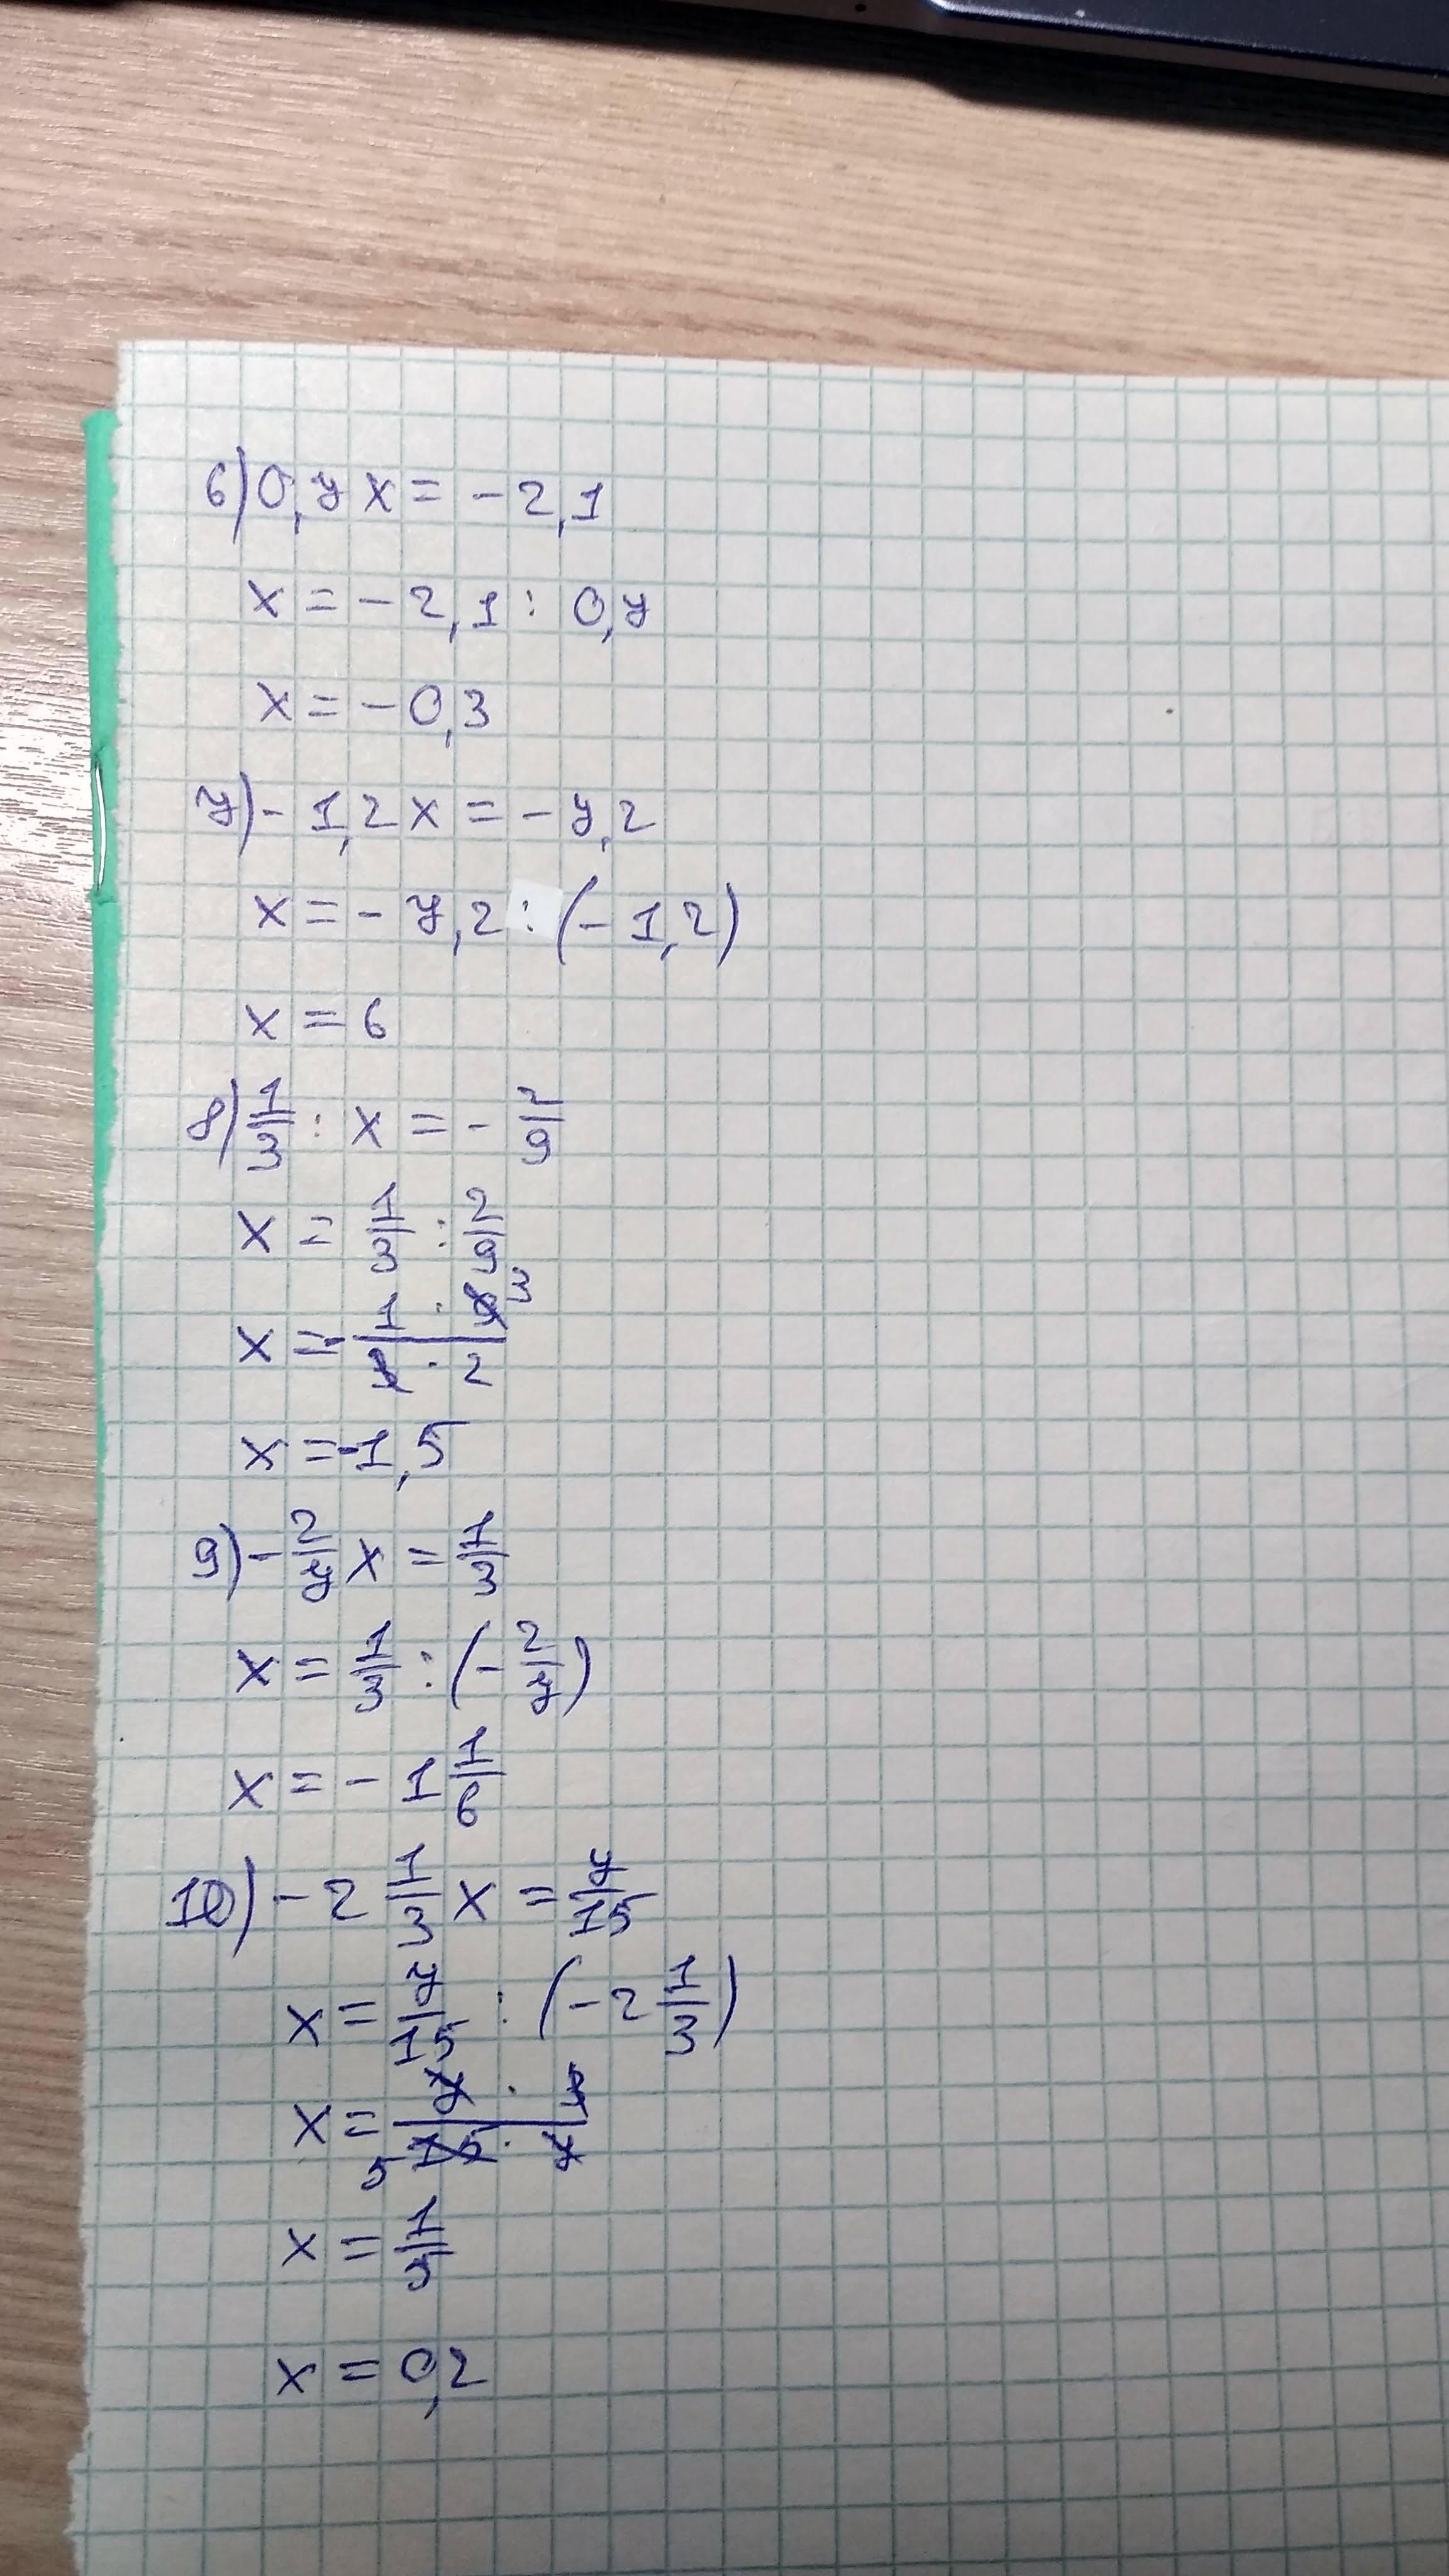 6) 0,7 x = - 2,1
x = - 2,1 : 0,7
x = - 0,3
7) - 1,2 x = - 7,2
x = - 7,2 : (- 1,2)
x = 6
8) 1/3 : x = - 2/9
x = 1/3 : 2/9
x = - (1 · 9 3)/(3 · 2)
x = -1,5
9) - 2/7 x = 1/3
x = 1/3 : (- 2/7)
x = - 1 1/6
10) - 2 1/3 x = 7/15
x = 7/15 : (- 2 1/3)
x = (7 · 3)/(5 15 · 7)
x = 1/5
x = 0,2